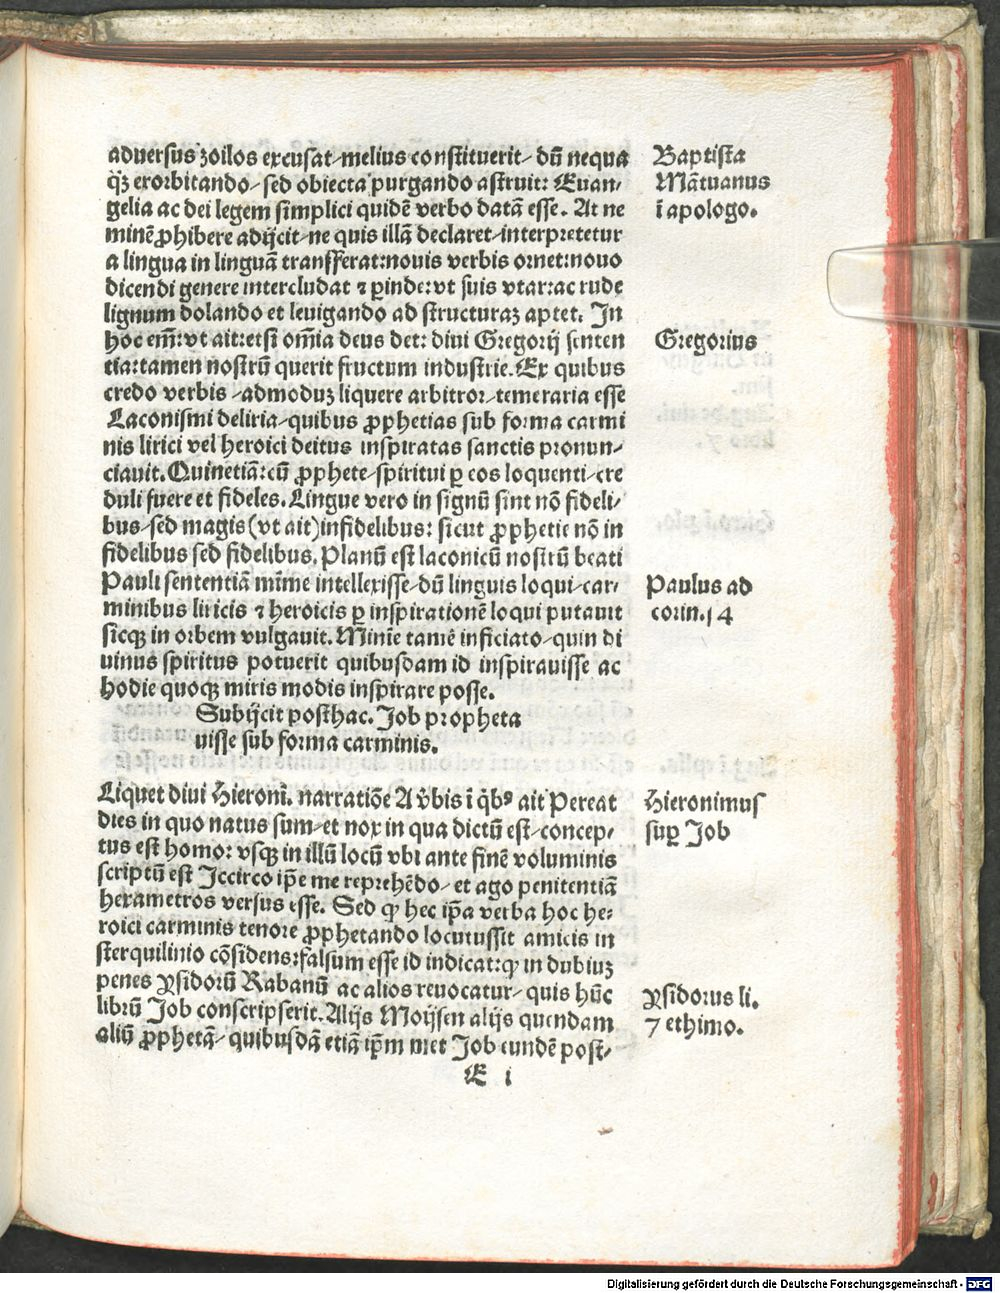 aduersus zoilos excusat/melius constituerit/dū nequa
q̄ꝫ exorbitando/sed obiecta purgando astruit: Euan/
gelia ac dei legem simplici quidē verbo datā esse. At ne
minē ꝓhibere adijcit/ne quis illā declaret/interpretetur
a lingua in linguā transfferat:nouis verbis ornet:nouo
dicendi genere intercludat ⁊ ꝑinde:vt suis vtar:ac rude
lignum dolando et leuigando ad structuraꝫ aptet. In
hoc em̄:vt ait:etsi om̄ia deus det: diui Gregorij senten
tia:tamen nostrū querit fructum industrie.Ex quibus
credo verbis/admoduꝫ liquere arbitror/temeraria esse
Laconismi deliria/quibus ꝓphetias sub forma carmi
nis lirici vel heroici deitus inspiratas sanctis pronun/
ciauit.Quinetiā:cū ꝓphete/spiritui ꝑ eos loquenti/cre
duli fuere et fideles.Lingue vero in signū sint nō fideli/
bus/sed magis(vt ait)infidelibus: sicut ꝓphetie nō in
fidelibus sed fidelibus.Planū est laconicū nostrū beati
Pauli sententiā mīme intellexisse/dū linguis loqui/car/
minibus liricis ⁊ heroicis ꝑ inspirationē loqui putauit
sicqꝫ in orbem vulgauit.Minīe tamē inficiato/quin di
uinus spiritus potuerit quibusdam id inspirauisse ac
hodie quoqꝫ miris modis inspirare posse.
Subijcit posthac. Job propheta
uisse sub forma carminis.
Liquet diui Hieroni. narratiōe A v̄bis ī q̄bꝰ ait Pereat
dies in quo natus sum/et nox in qua dictū est/concep/
tus est homo: vsqꝫ in illū locū vbi ante finē voluminis
scriptū est Iccirco ip̄e me reprehēdo/et ago penitentiā
hexametros versus esse. Sed ꝙ hec ip̄a verba hoc he:
roici carminis tenore ꝓphetando locutussit amicis in
sterquilinio cōsidens:falsum esse id indicat:ꝙ in dubiuꝫ
penes Ysidorū Rabanū ac alios reuocatur/quis hūc
librū Job conscripserit.Alijs Moijsen alijs quendam
aliū ꝓphetā/quibusdā etiā ip̄m met Job eundē post/
E i
Baptista
Mātuanus
ī apologo.
Gregorius
Paulus ad
corin.14
Hieronimus
suꝑ Job
Ysidorus li.
7 ethimo.
Digitalisierung gefördert durch die Deutsche Forschungsgemeinschaft - DFG